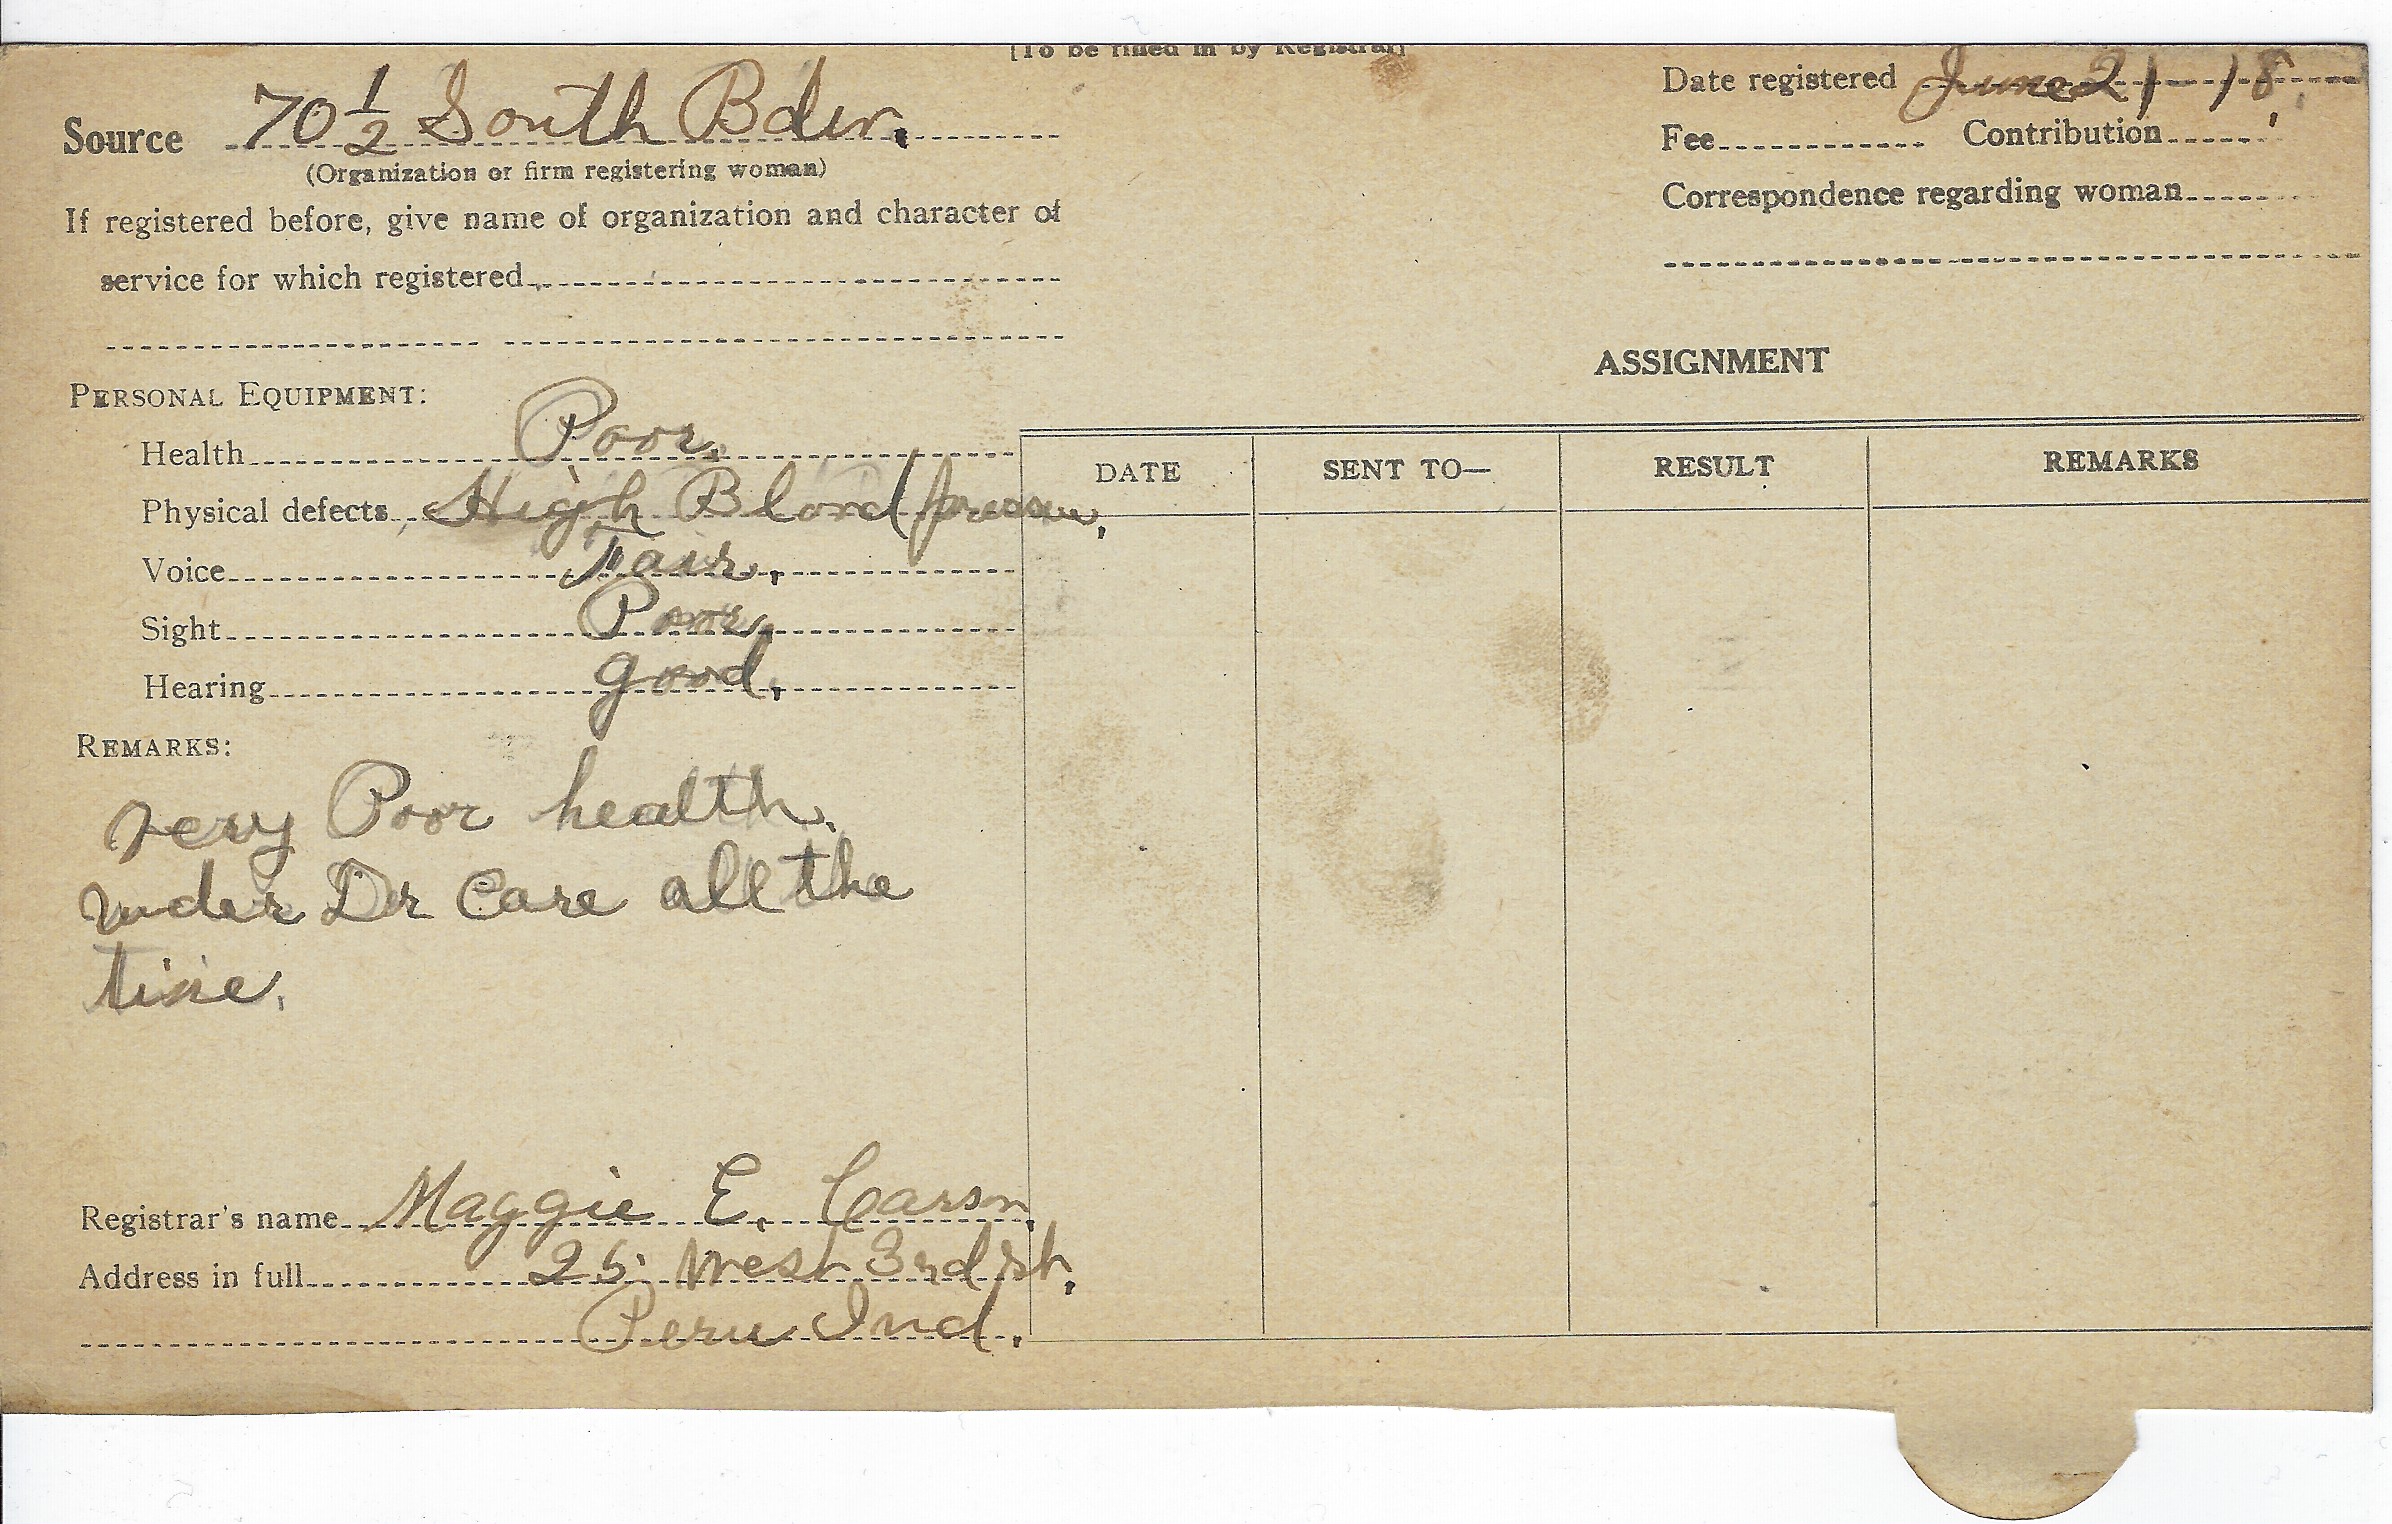 [To be filled in by Registrar]
Source 70 1/2 South Bdw.
(Organization or firm registering woman)
If registered before, give name of organization and character of
service for which registered
PERSONAL EQUIPMENT:
Health Poor.
Physical defects High Blood
Voice Fair.
Sight Poor.
Hearing good.
REMARKS:
very Poor health.
under Dr Care all the
time.
Registrar's name Maggie E. Carson.
Address in full 25 West 3rd st.
Peru Ind.
Date registered June 21-18.
Fee Contribution
Correspondence regarding woman
ASSIGNMENT
DATE SENT TO— RESULT REMARKS